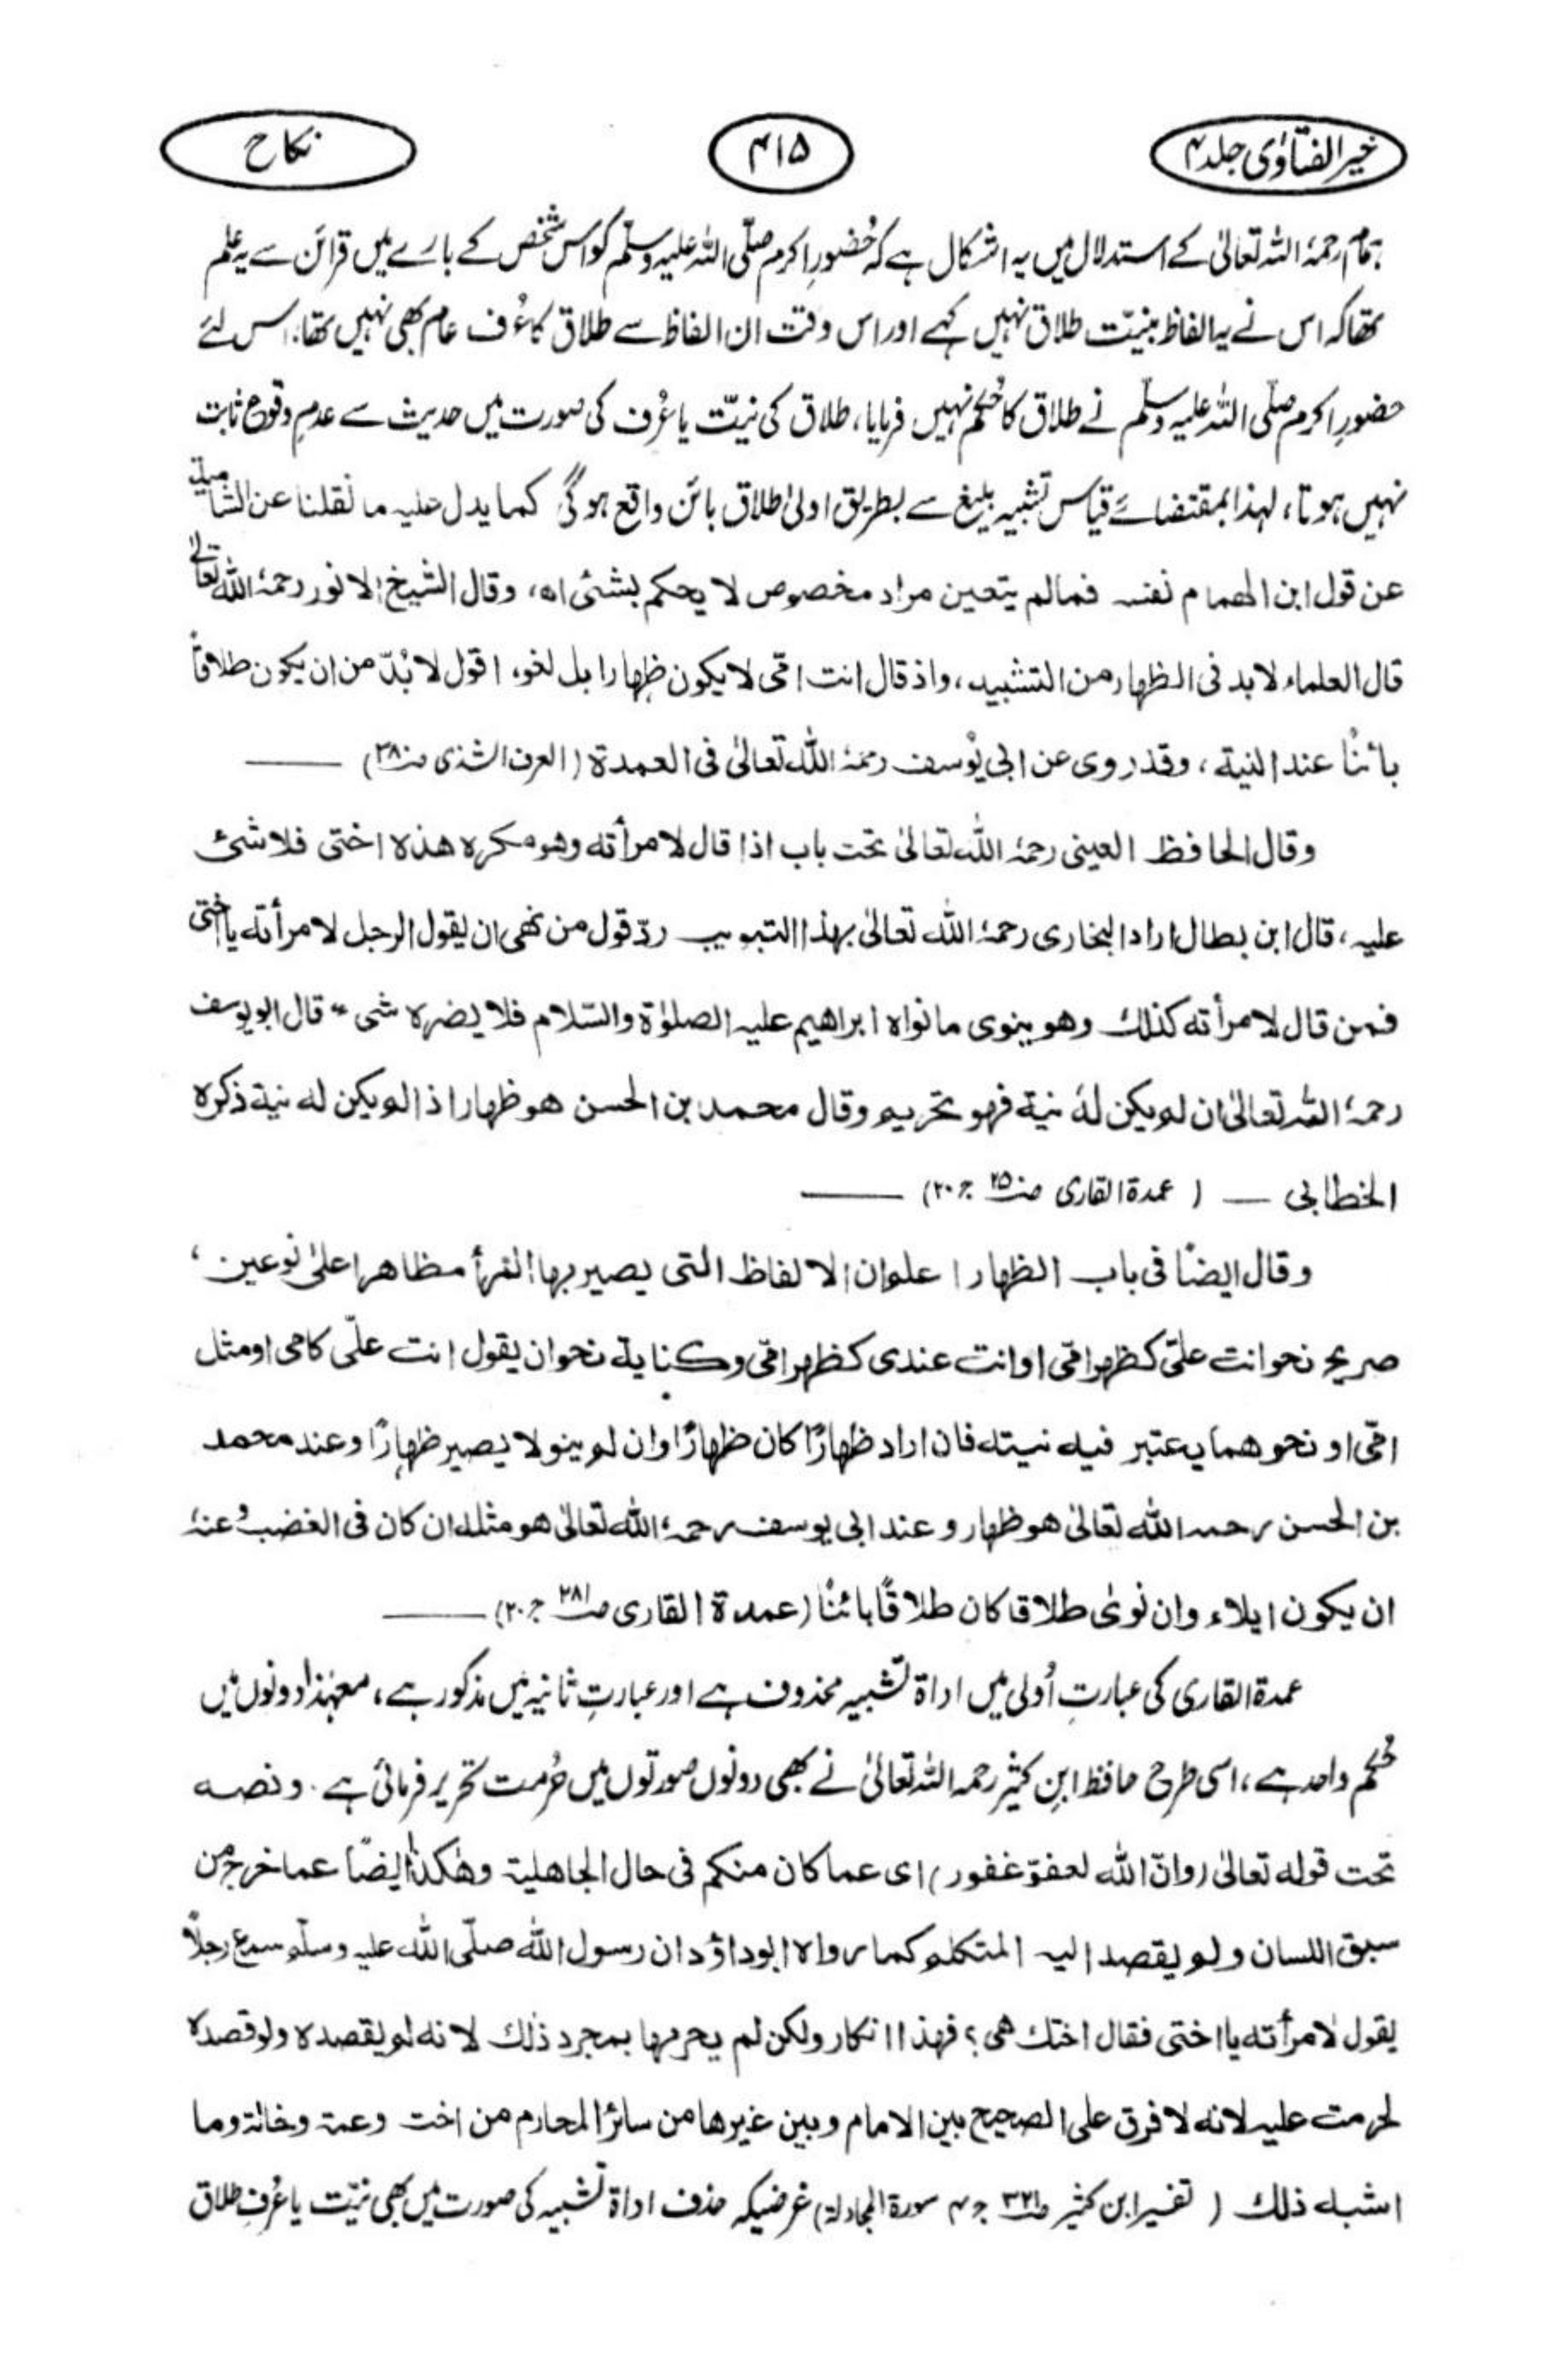 خیر الفتاوٰی جلد ۴
۴۱۵
نکاح
ہمام رحمہُ اللہ تعالیٰ کے استدلال میں یہ اشکال ہے کہ حُضورِ اکرم صلّی اللہ علیہ وسلّم کو اس شخص کے بارے میں قرائن سے یہ علم
تھا کہ اس نے یہ الفاظ بنیّت طلاق نہیں کہے اور اس وقت ان الفاظ سے طلاق کا عُرف عام بھی نہیں تھا، اس لئے
حضورِ اکرم صلّی اللہ علیہ وسلّم نے طلاق کا حُکم نہیں فرمایا، طلاق کی نیّت یا عُرف کی صورت میں حدیث سے عدمِ وقوع ثابت
نہیں ہوتا، لہٰذا بمقتضائے قیاس تشبیہ بلیغ سے بطریق اولیٰ طلاق بائن واقع ہوگی کما یدل علیہ ما نقلنا عن الشامیة
عن قول ابن الھمام نفسہ فمالم یتعین مراد مخصوص لا یحکم بشئی اھ، وقال الشیخ الانور رحمہُ اللہ تعالیٰ
قال العلماء لابد فی الظہار من التشبیہ، واذ قال انت امّی لا یکون ظِہارا بل لغو، اقول لا بُدّ من ان یکون طلاقاً
بائنًا عند النیة، وقد روی عن ابی یُوسف رحمہُ اللہ تعالیٰ فی العمدة (العرف الشذی صـ ۳۸)
وقال الحافظ العینی رحمہُ اللہ تعالیٰ تحت باب اذا قال لامرأته وهو مکره هذه اختی فلا شئ
علیہ، قال ابن بطال اراد البخاری رحمہُ اللہ تعالیٰ بهذا التبویب ردّ قول من نهی ان یقول الرجل لامرأته یا اختی
فمن قال لامرأته کذلک وهو ینوی ما نواه ابراهیم علیہ الصلوٰة والسّلام فلا یضره شی ” قال ابو یوسف
رحمہُ اللہ تعالیٰ ان لم یکن لهُ نیة فهو تحریم وقال محمد بن الحسن هو ظهار اذا لم یکن له نیة ذکره
الخطابی — (عمدة القاری صـ ۲۵ ج ۲۰)
وقال ایضًا فی باب الظهار اعلم ان الالفاظ التی یصیر بها المرأ مظاهرا علیٰ نوعین،
صریح نحو انت علیّ کظهر امّی او انت عندی کظهر امّی وکنایة نحو ان یقول انت علّی کامی او مثل
امّی او نحوهما یعتبر فیه نیته فان اراد ظهارًا کان ظهارًا وان لم ینو لا یصیر ظهارًا وعند محمد
بن الحسن رحمہ اللہ تعالیٰ هو ظهار وعند ابی یوسف رحمہُ اللہ تعالیٰ هو مثله ان کان فی الغضب وعنہُ
ان یکون ایلاء وان نویٰ طلاقا کان طلاقًا بائنًا (عمدة القاری صـ ۲۸۱ ج ۲۰)
عمدة القاری کی عبارتِ اُولی میں اداة تشبیہ محذوف ہے اور عبارتِ ثانیہ میں مذکور ہے، معہٰذا دونوں میں
حُکم واحد ہے، اسی طرح حافظ ابنِ کثیر رحمہ اللہ تعالیٰ نے بھی دونوں صورتوں میں حُرمت تحریر فرمائی ہے۔ ونصہ
تحت قوله تعالیٰ (وانّ اللہ لعفوّ غفور) ای عما کان منکم فی حال الجاهلیة وهٰکذا ایضًا عما خرج من
سبق اللسان ولم یقصد الیہ المتکلم کما رواه ابوداؤد ان رسول اللہ صلّی اللہ علیہ وسلّم سمع رجلاً
یقول لامرأته یا اختی فقال اختک هی؟ فهذا انکار ولکن لم یحرمها بمجرد ذٰلک لانه لم یقصده ولو قصده
لحرمت علیہ لانه لا فرق علی الصحیح بین الام و بین غیرها من سائر المحارم من اخت وعمة وخالة وما
اشبه ذلک (تفسیر ابن کثیر صـ ۳۲۱ ج ۴ سورة المجادلة) غرضیکہ حذف اداة تشبیہ کی صورت میں بھی نیّت یا عُرفِ طلاق